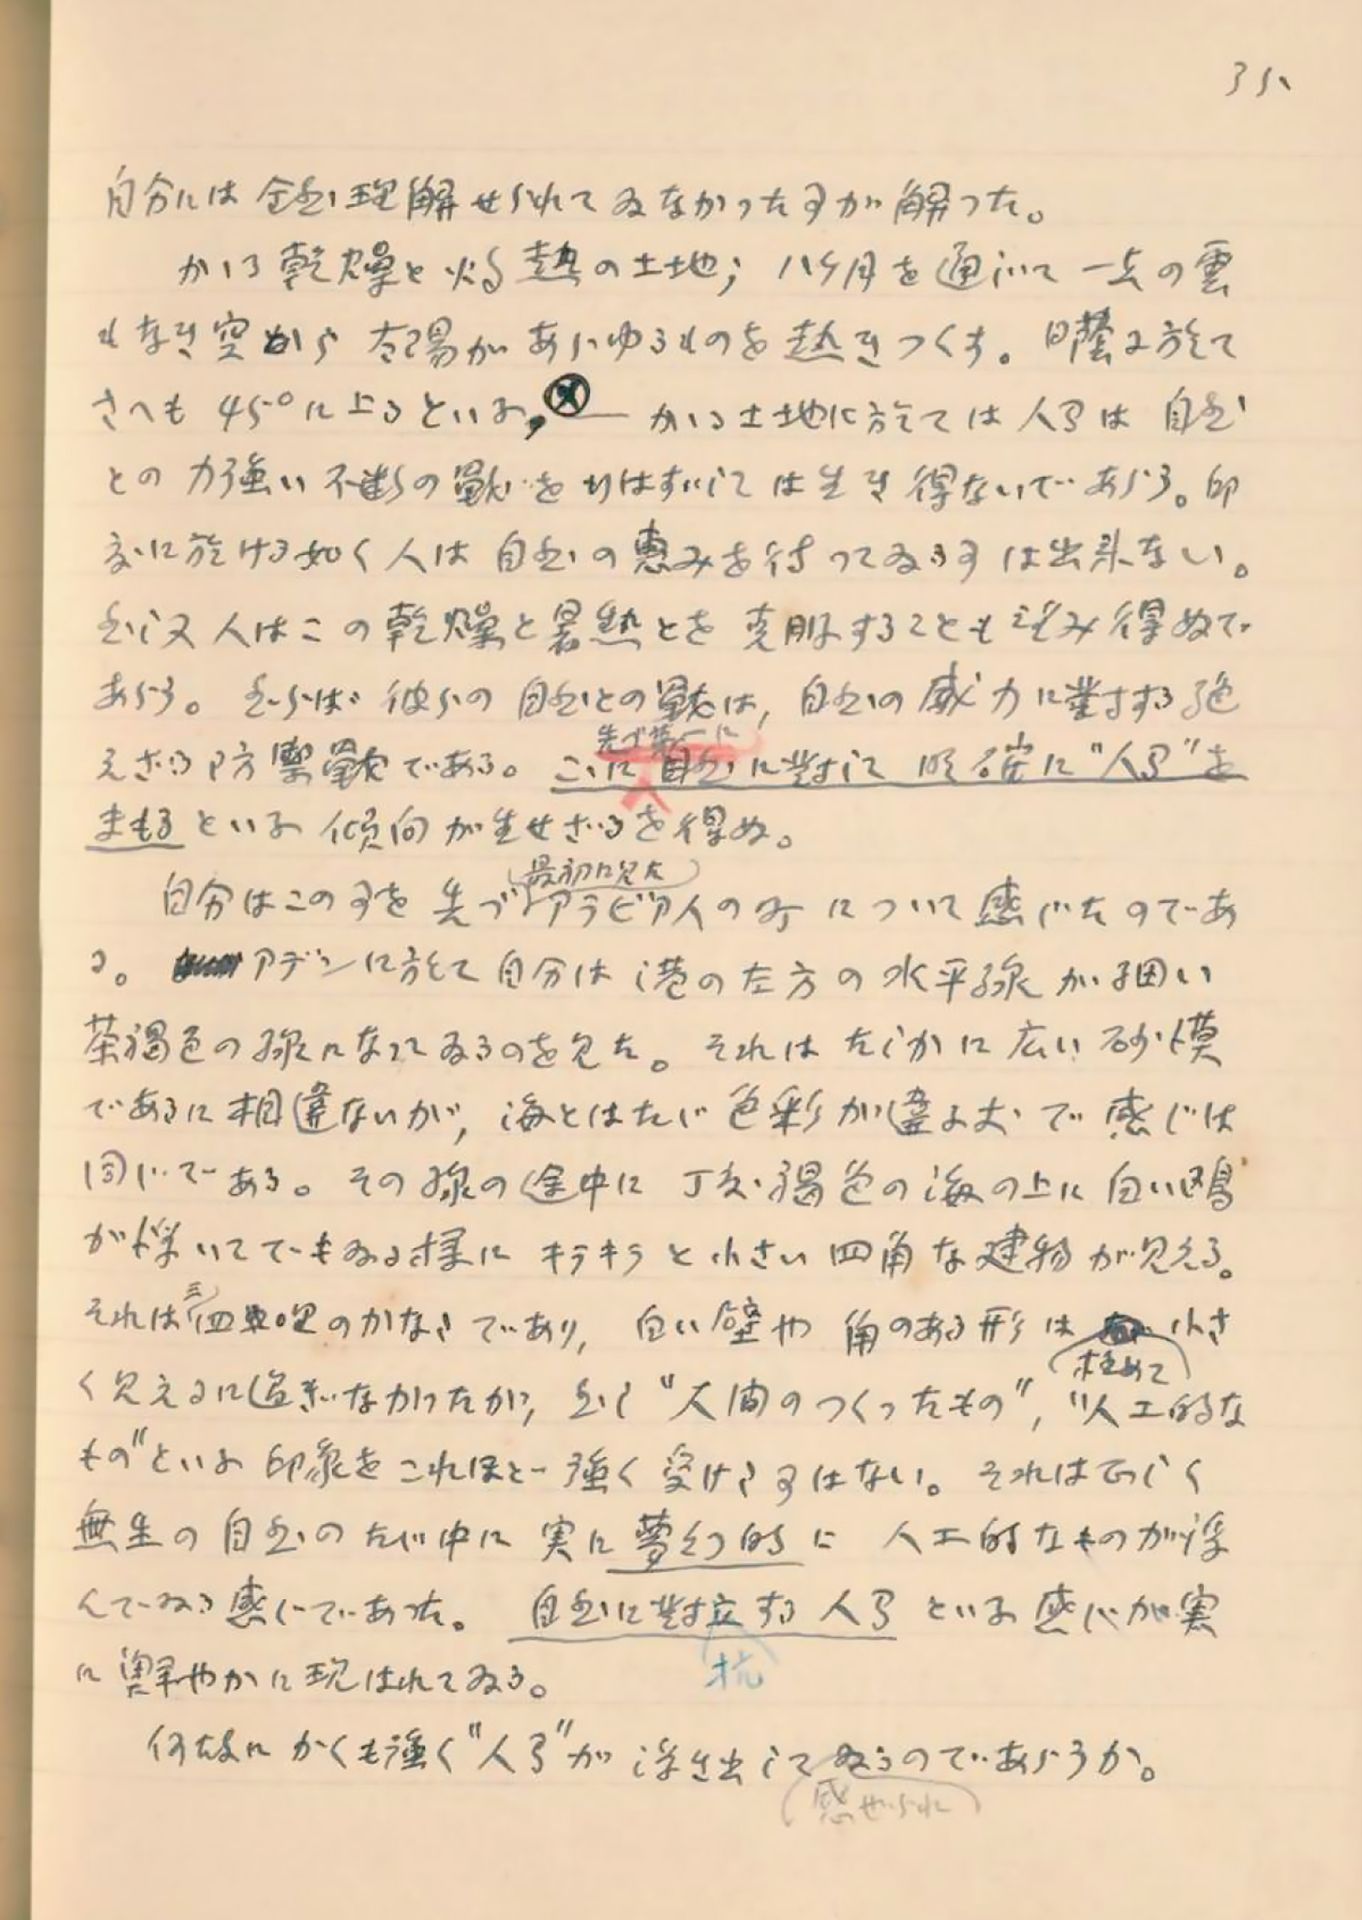 35、
自分には全然理解せられてゐなかった事が解った。
かゝる乾燥と灼熱の土地；八ケ月を通じて一点の雲
もなき空から太陽があらゆるものを熱きつくす。日蔭に於て
さへも45°に上るといふ，かゝる土地に於ては人間は自然
との力強い不断の戦をなすことなしには生き得ないであらう。印
度に於ける如く人は自然の恵みを待ってゐる事は出来ない。
然し又人はこの乾燥と暑熱とを克服することも望み得ぬで
あらう。然らば彼らの自然との戦は，自然の威力に對する絶
先づ第一に
えざる防禦戦である。こゝに自然に對して明確に"人間"を
まもるといふ傾向が生ぜざるを得ぬ。
最初に見た
自分はこの事を先づアラビア人の町について感じたのであ
る。アデンに於て自分は港の左方の水平線が細い
茶褐色の線になってゐるのを見た。それはたしかに広い砂漠
であるに相違ないが，海とはたゞ色彩が違ふ丈で感じは
同じである。その線の途中に丁度褐色の海の上に白い鴎
が浮いてでもゐる様にキラキラと小さい四角な建物が見える。
三
それは四哩のかなたであり，白い壁や角のある形は小さ
極めて
く見えるに過ぎなかったが，然し"人間のつくったもの"，"人工的な
もの"といふ印象をこれほど強く受けた事はない。それは正しく
無生の自然のたゞ中に実に夢幻的に人工的なものが浮
んでゐる感じであった。自然に對立する人間といふ感じが実
抗
に鮮やかに現はれてゐる。
何故にかくも強く"人間"が浮き出してゐるのであらうか。
感ぜられ